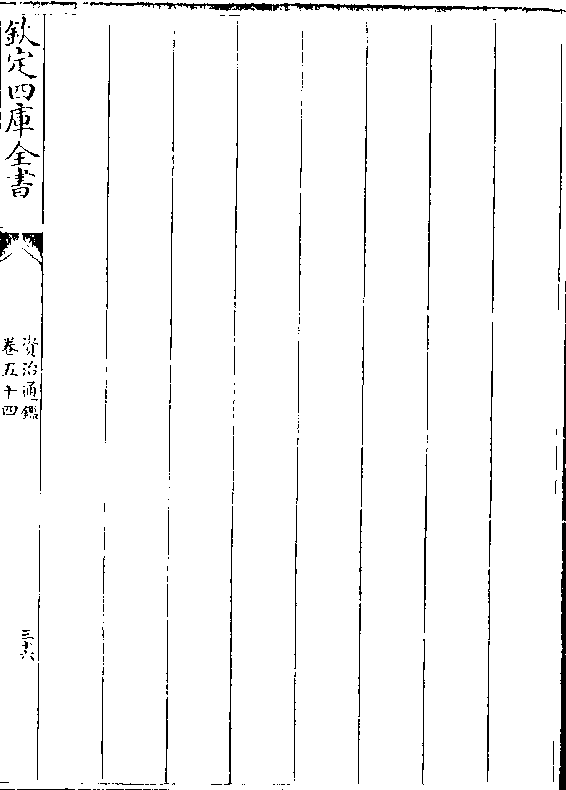 欽定四庫全書
資治通鑑
卷五十四
三十六